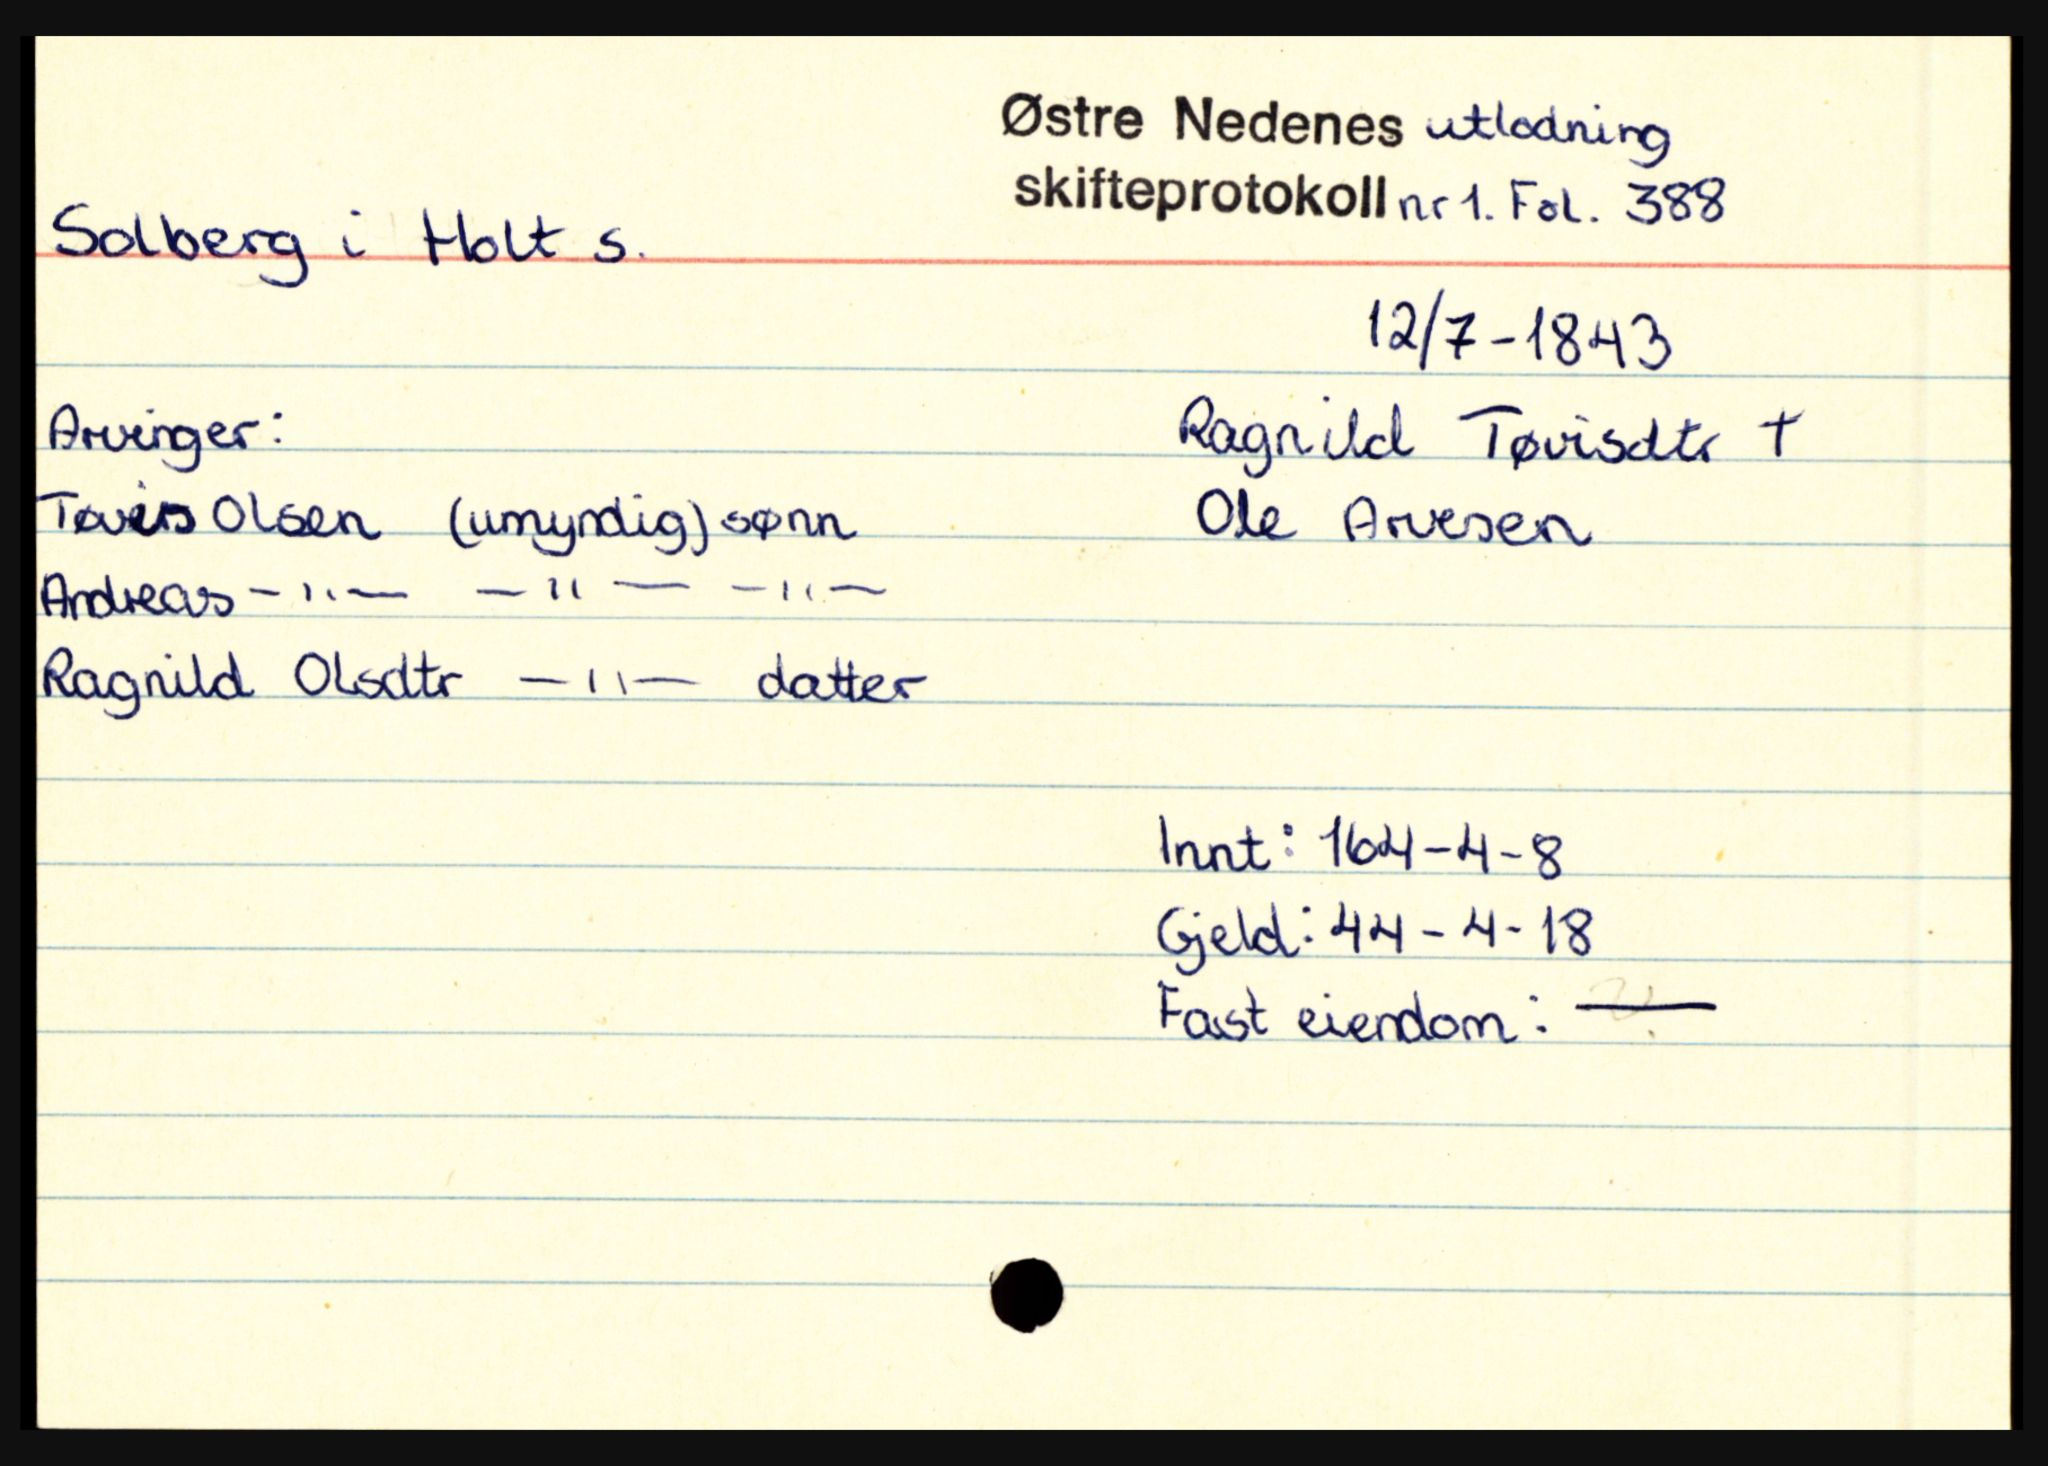 Østre Nedenes utlodning
skifteprotokoll nr 1. Fol. 388
Solberg i Holt s.
12/7-1843
Arvinger:
Ragnild Tøvisdtr †
Tøvis Olsen (umyndig) sønn
Ole Arvesen
Andreas -"- -"- -"-
Ragnild Olsdtr -"- datter
Innt: 164-4-8
Gjeld: 44-4-18
Fast eiendom: —